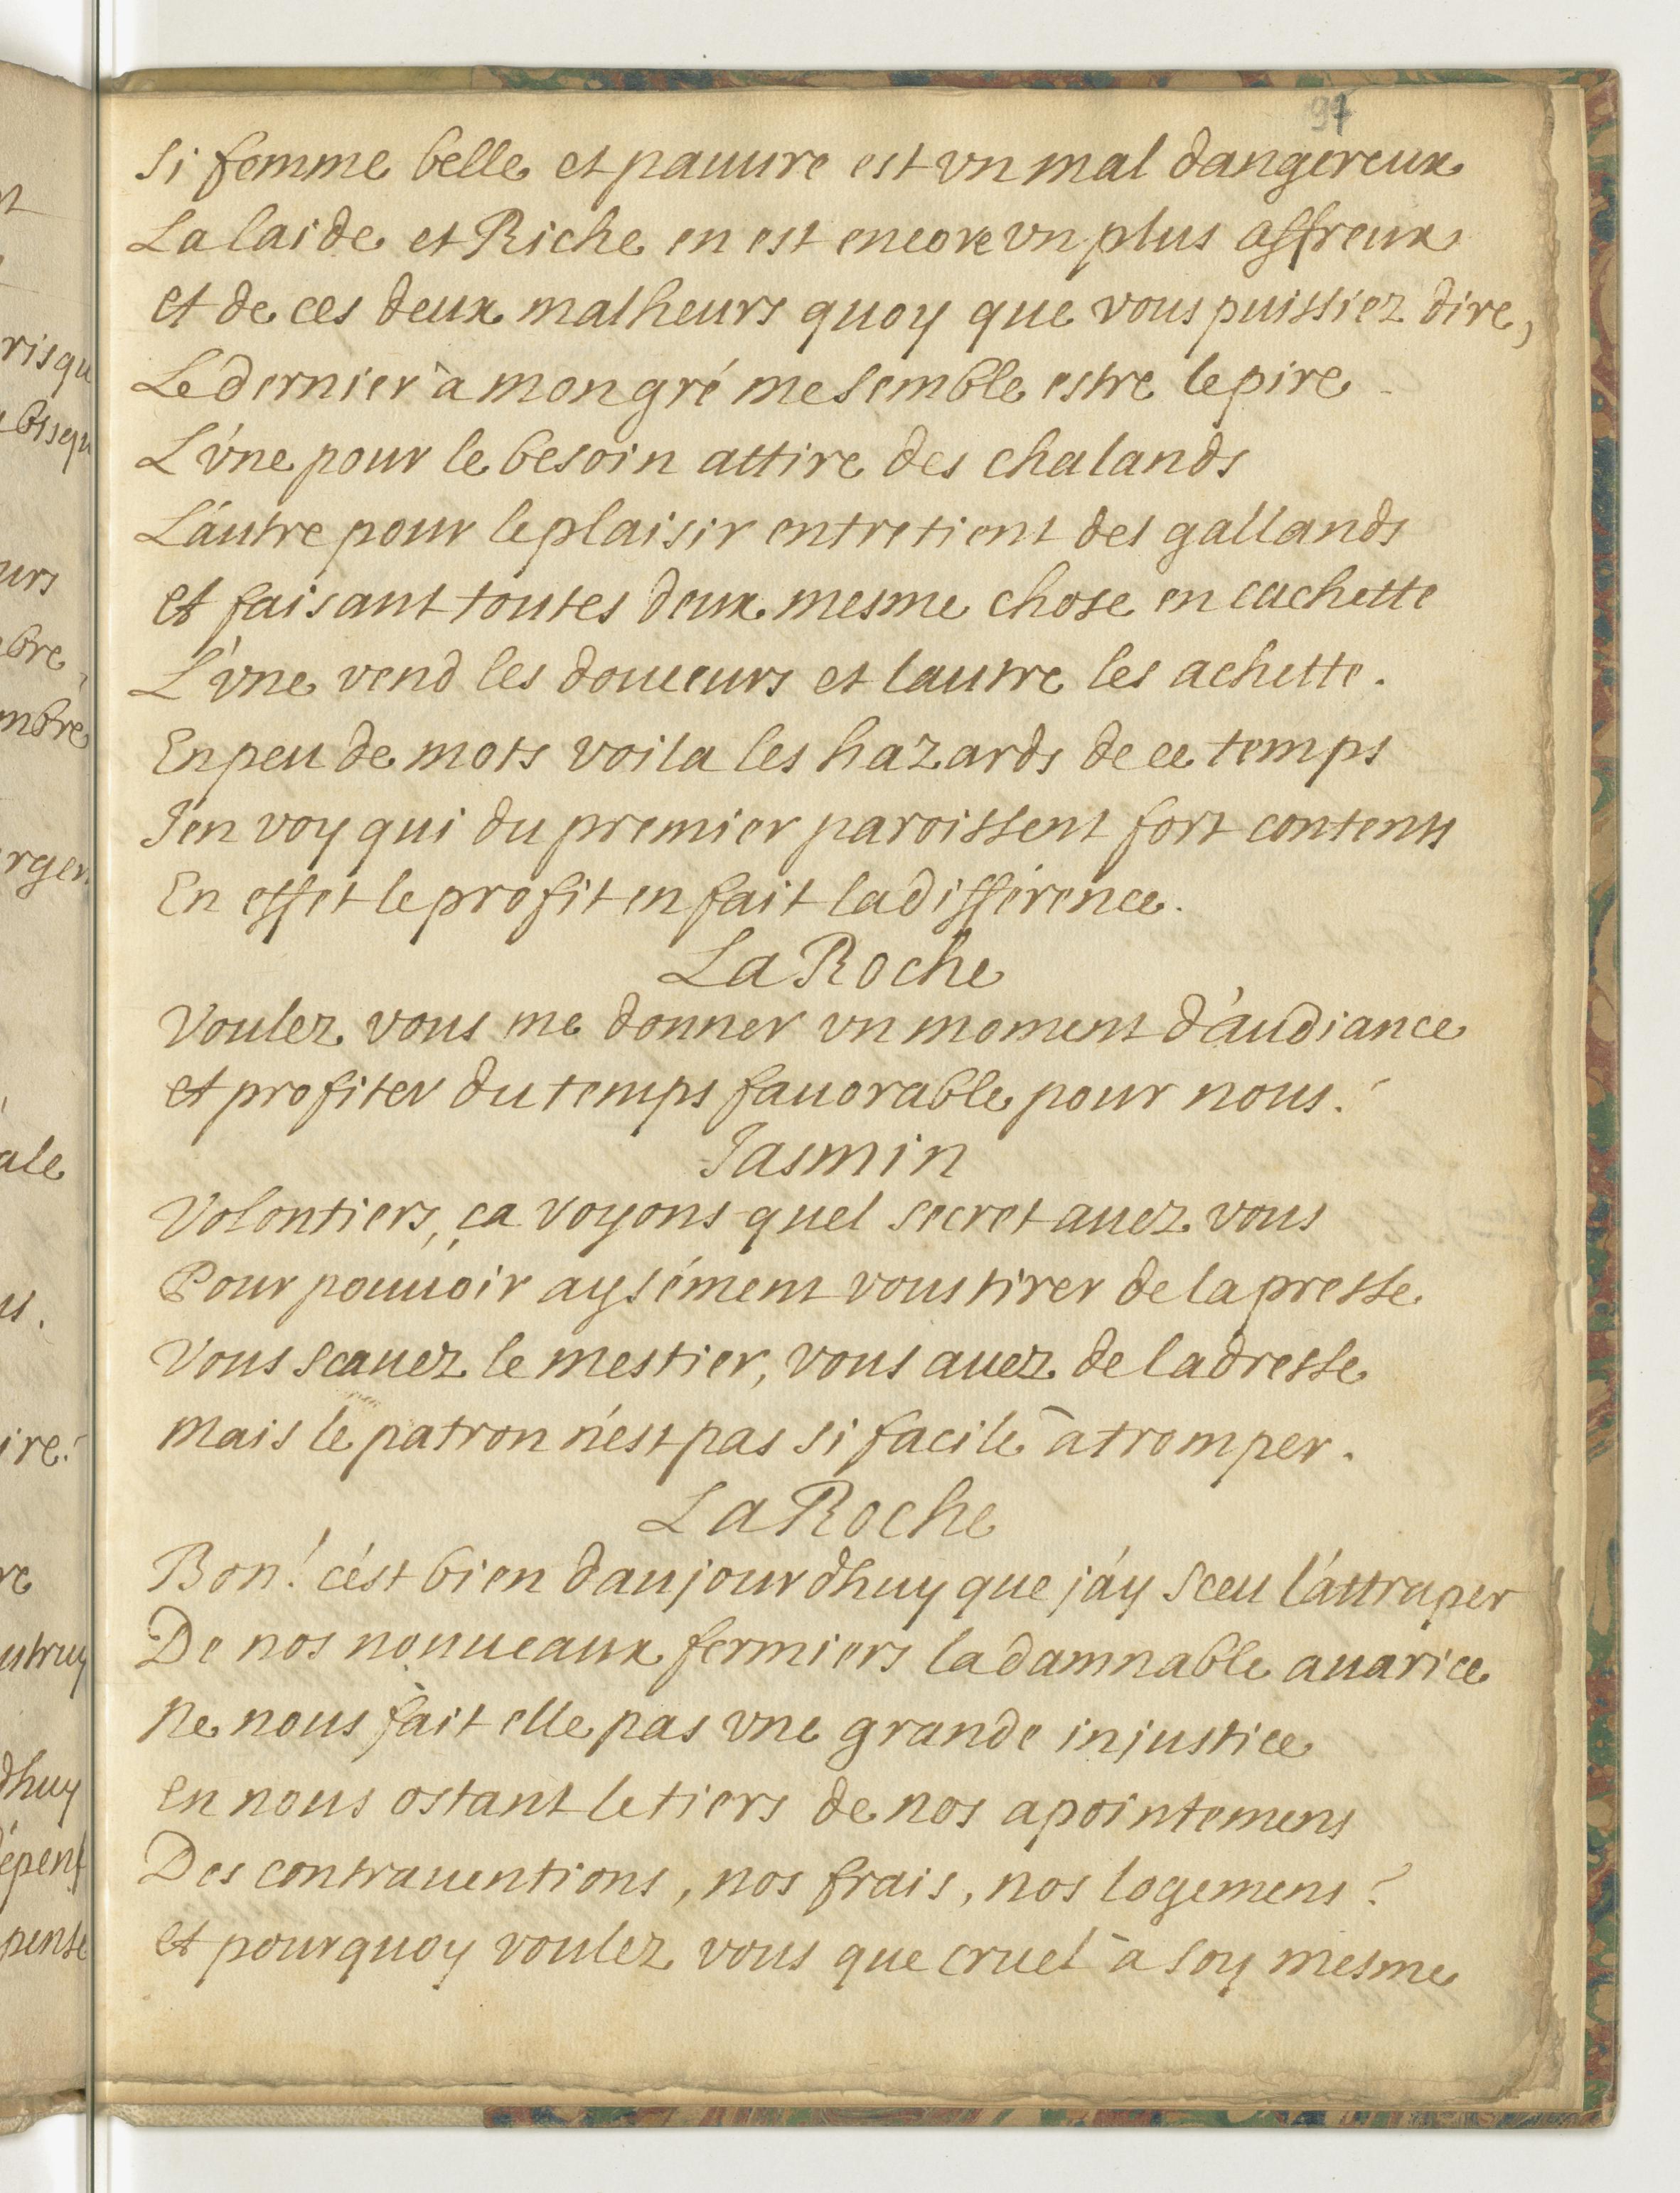 97
Si femme belle et pauure est vn mal dangereux
La laide et Riche en est encore vn plus affreux
et de ces deux malheurs quoy que vous puissiez dire,
Le dernier à mon gré me semble estre le pire
L'vne pour le besoin attire des chalands
L'autre pour le plaisir entretient des gallands
et faisant toutes deux mesme chose en cachette
L'vne vend les douceurs et lautre les achette.
En peu de mots voila les hazards de ce temps
J'en voy qui du premier paroissent fort contents
En effet le profit en fait la difference.
La Roche
Voulez vous me donner vn moment d'audiance
et profiter du temps fauorable pour nous?
Jasmin
Volontiers, ça voyons quel secret auez vous
Pour pouuoir aysément vous tirer de la presse
Vous scauez le mestier, vous auez de ladresse
mais le patron n'est pas si facile à tromper.
La Roche
Bon! c'est bien daujourdhuy que j'ay sceu l'attraper
De nos nouueaux fermiers la damnable auarice
Ne nous fait elle pas vne grande injustice
en nous ostant le tiers de nos apointemens
Des contrauentions, nos frais, nos logemens?
et pourquoy voulez vous que cruel à soy mesme